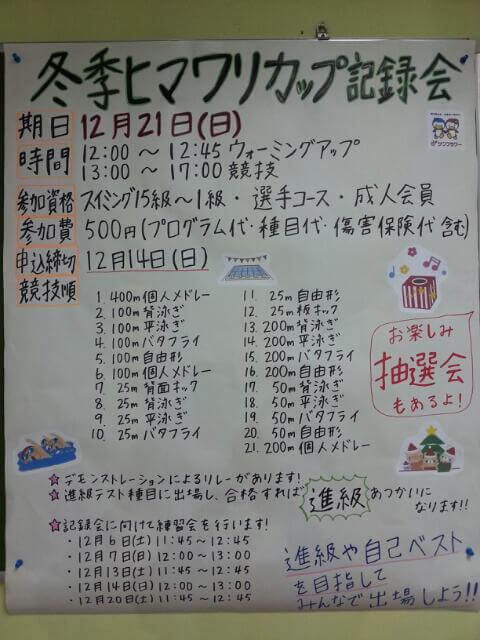 冬季ヒマワリカップ記録会
期日 12月21日(日)
時間 12:00 ~ 12:45 ウォーミングアップ
13:00 ~ 17:00 競技
参加資格 スイミング15級~1級・選手コース・成人会員
参加費 500円(プログラム代・種目代・傷害保険代 含む)
申込締切 12月14日(日)
競技順
1. 400m個人メドレー
2. 100m背泳ぎ
3. 100m平泳ぎ
4. 100mバタフライ
5. 100m自由形
6. 100m個人メドレー
7. 25m背面キック
8. 25m背泳ぎ
9. 25m平泳ぎ
10. 25mバタフライ
11. 25m自由形
12. 25m板キック
13. 200m背泳ぎ
14. 200m平泳ぎ
15. 200mバタフライ
16. 200m自由形
17. 50m背泳ぎ
18. 50m平泳ぎ
19. 50mバタフライ
20. 50m自由形
21. 200m個人メドレー
お楽しみ
抽選会
もあるよ!
☆デモンストレーションによるリレーがあります!
☆進級テスト種目に出場し、合格すれば進級あつかいに
なります!!
☆記録会に向けて練習会を行います!
・12月6日(土) 11:45 ~ 12:45
・12月7日(日) 12:00 ~ 13:00
・12月13日(土) 11:45 ~ 12:45
・12月14日(日) 12:00 ~ 13:00
・12月20日(土) 11:45 ~ 12:45
進級や自己ベスト
を目指して
みんなで出場しよう!!